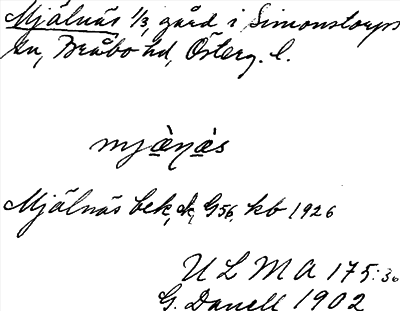 Mjälnäs 1/3, gård i Simonstorps
sn, Bråbo hd, Österg. l.
mjæ̀ṇæ̀s
Mjälnäs bek, dk, G56, kb 1926
ULMA 175:36
G. Danell 1902